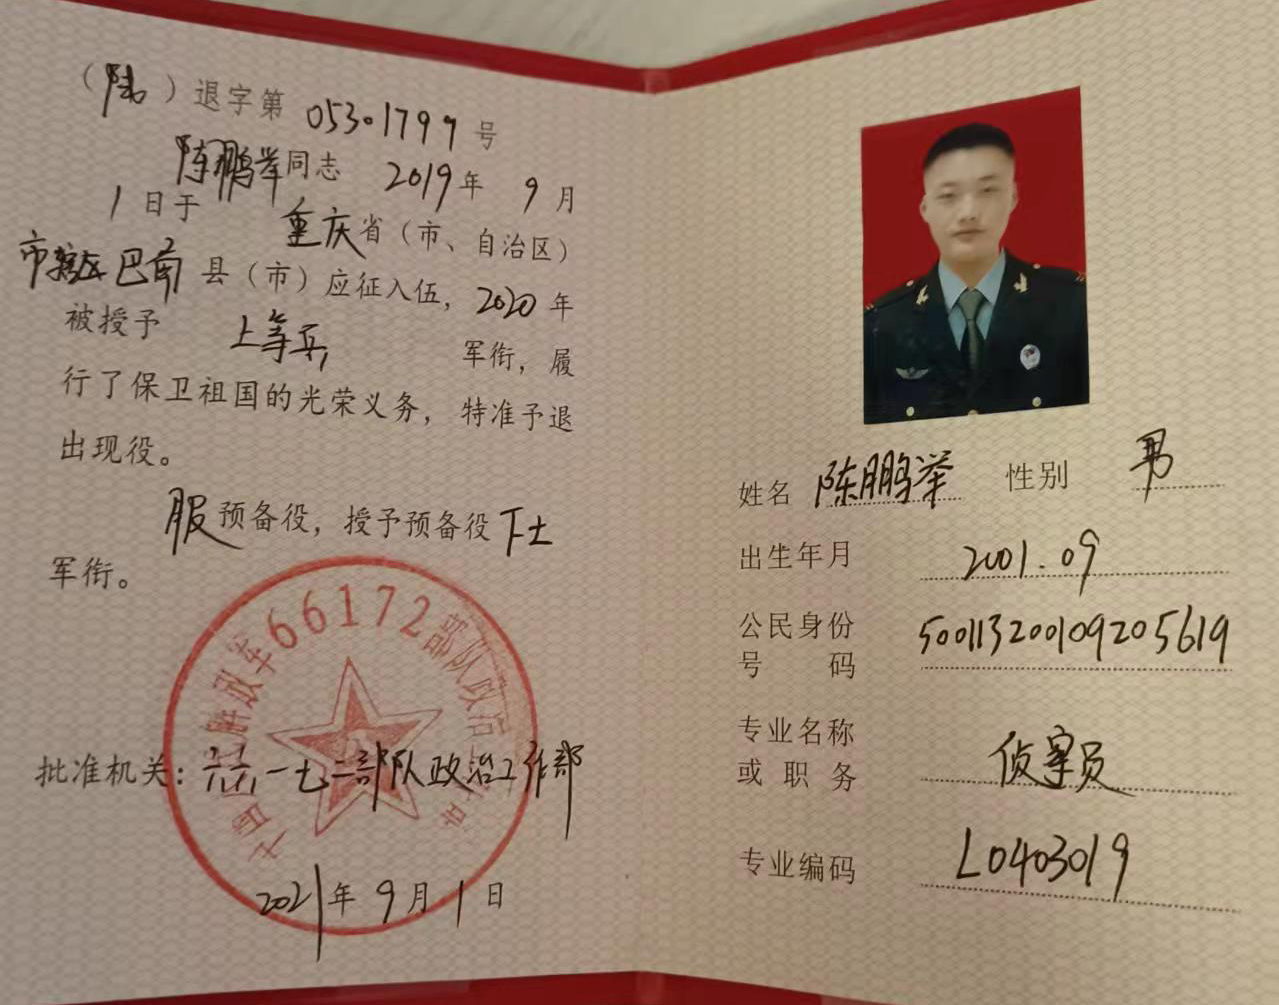 （陆）退字第 05301799 号
陈鹏举同志 2019年 9月
1日于 重庆省（市、自治区）
市辖区巴南县（市）应征入伍，2020年
被授予 上等兵 军衔，履
行了保卫祖国的光荣义务，特准予退
出现役。
服预备役，授予预备役下士
军衔。
中国人民解放军66172部队政治工作部
批准机关：六六一七二部队政治工作部
2021年9月1日
姓名 陈鹏举 性别 男
出生年月 2001.09
公民身份
号码 500113200109205619
专业名称
或职务 侦察员
专业编码 L0403019